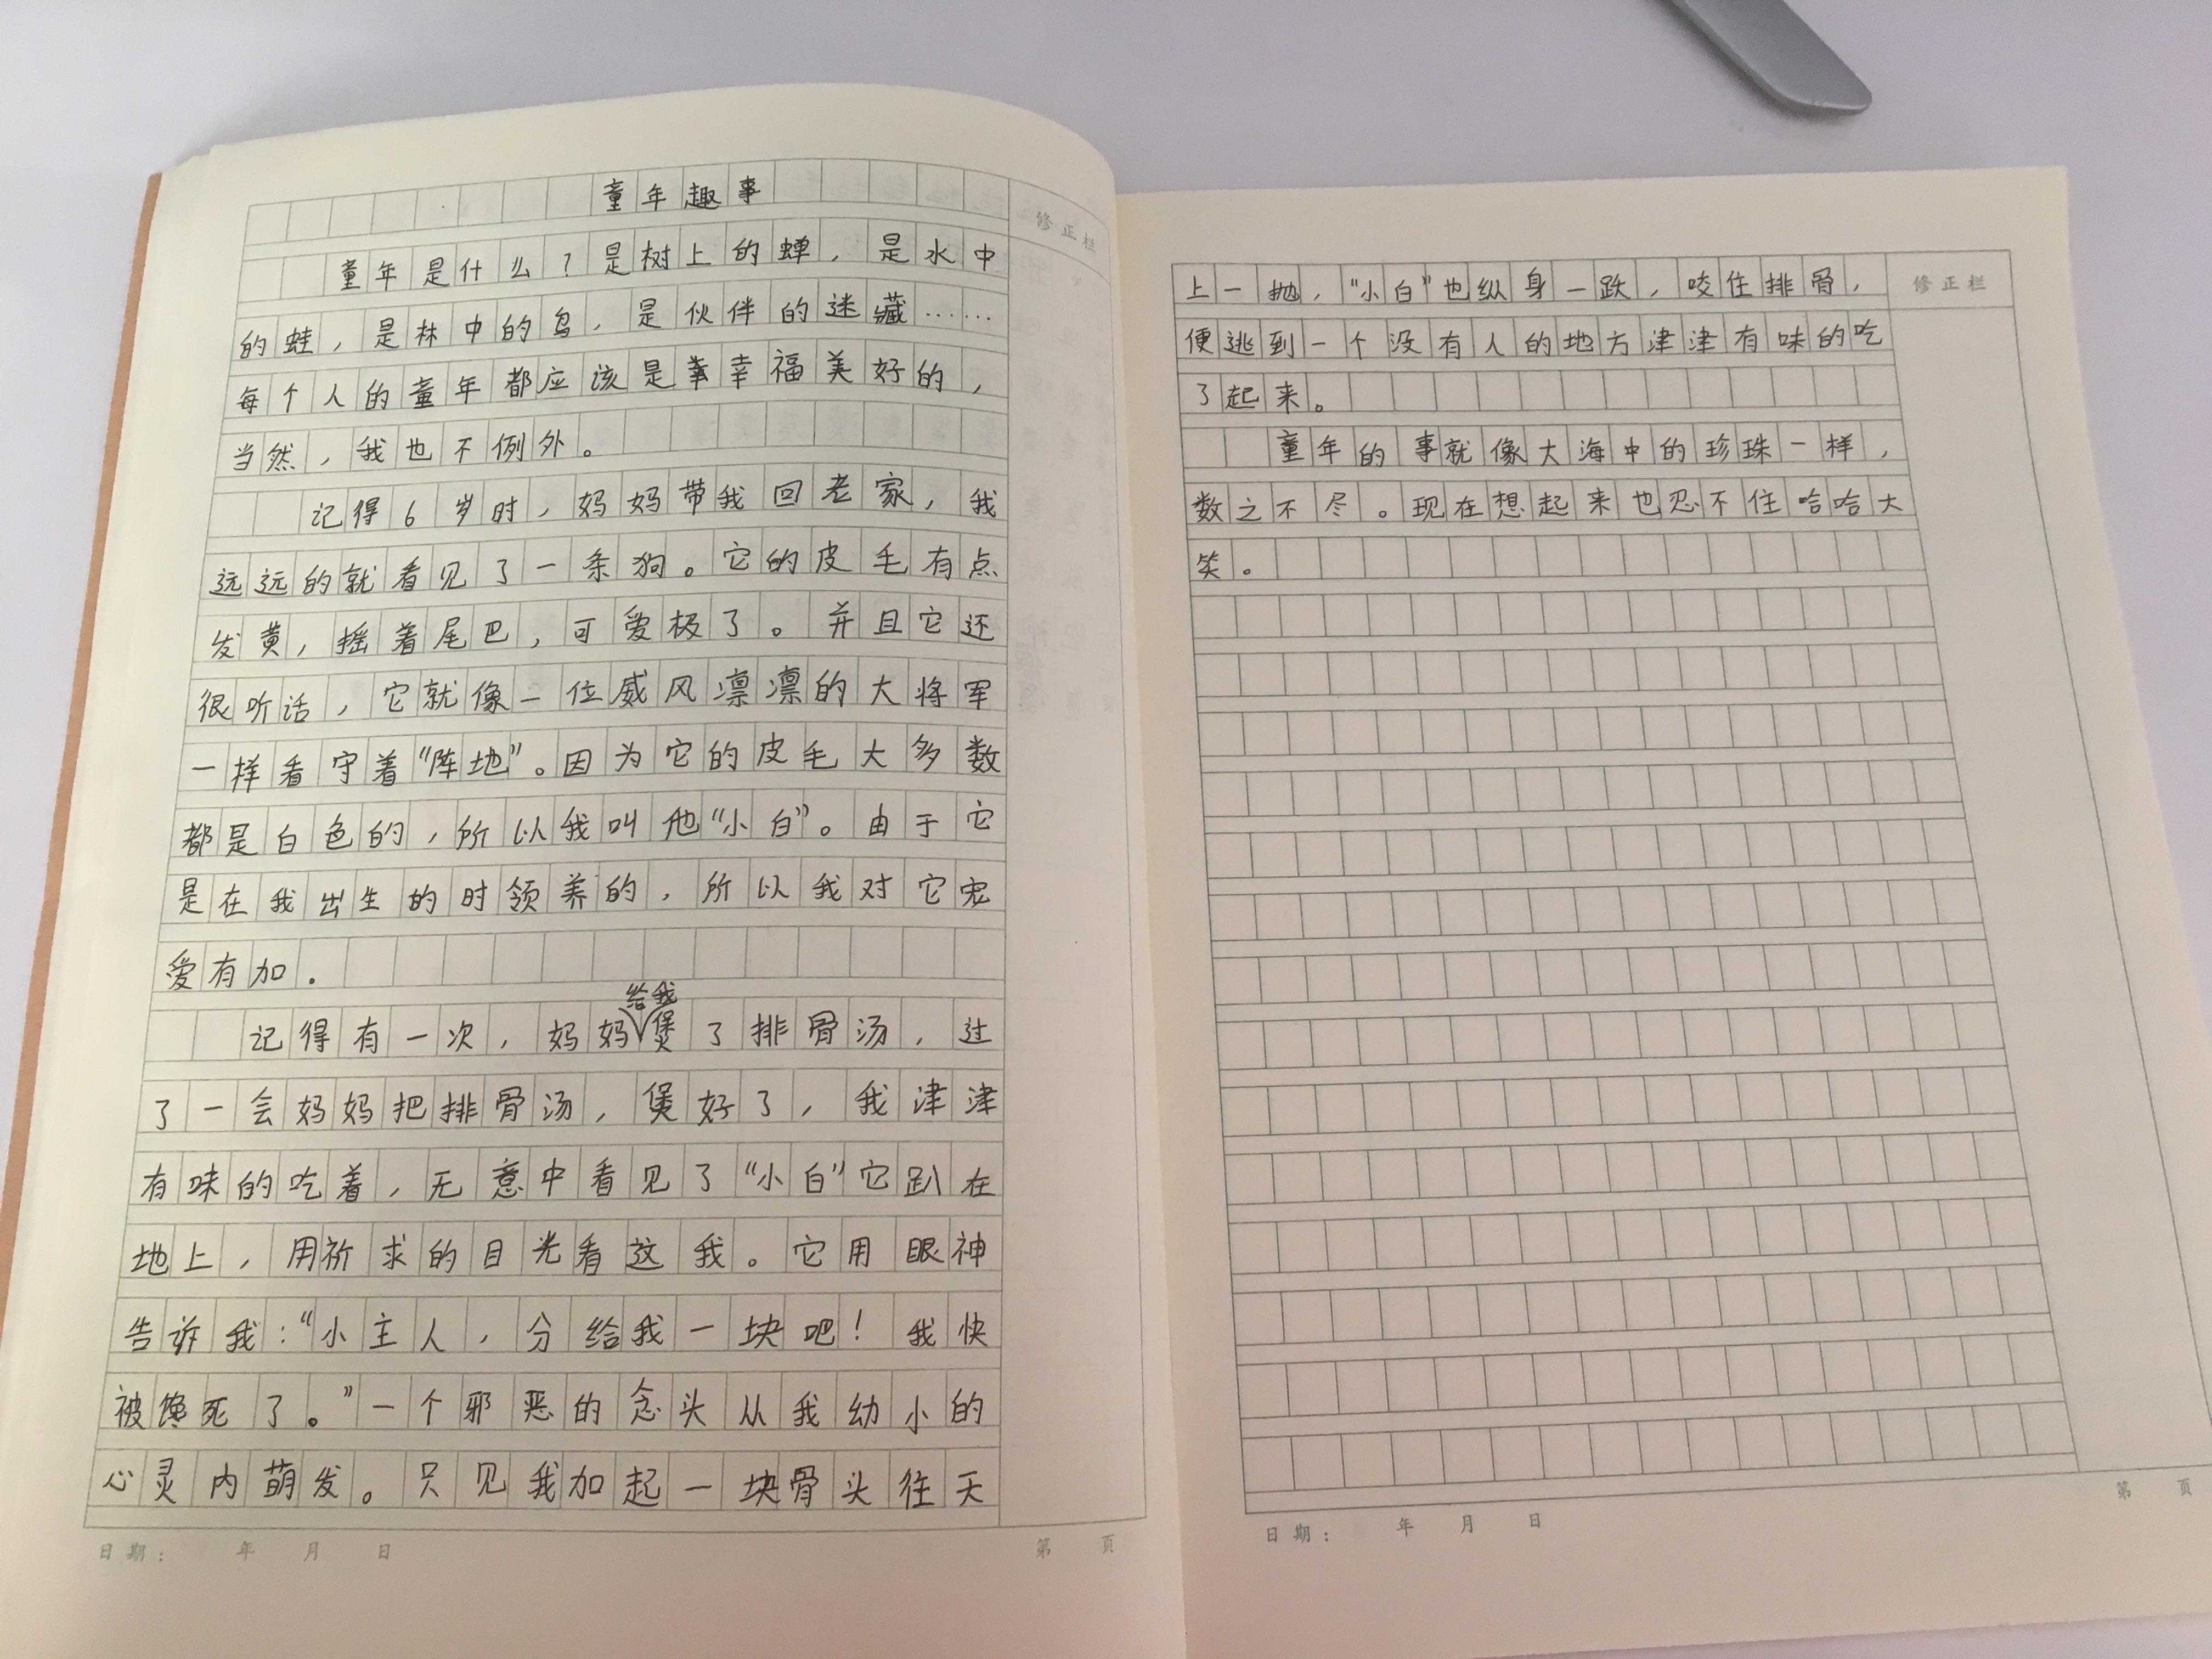 童年趣事
修正栏
童年是什么？是树上的蝉，是水中
的蛙，是林中的鸟，是伙伴的迷藏……
每个人的童年都应该是幸幸福美好的，
当然，我也不例外。
记得6岁时，妈妈带我回老家，我
远远的就看见了一条狗。它的皮毛有点
发黄，摇着尾巴，可爱极了。并且它还
很听话，它就像一位威风凛凛的大将军
一样看守着“阵地”。因为它的皮毛大多数
都是白色的，所以我叫他“小白”。由于它
是在我出生的时领养的，所以我对它宠
爱有加.
给我
记得有一次，妈妈煲了排骨汤，过
了一会妈妈把排骨汤，煲好了，我津津
有味的吃着，无意中看见了“小白”它趴在
地上，用祈求的目光看这我。它用眼神
告诉我：“小主人，分给我一块吧！我快
被馋死了。”一个邪恶的念头从我幼小的
心灵内萌发。只见我加起一块骨头往天
日期： 年 月 日
第 页
上一抛，“小白”也纵身一跃，咬住排骨，
修正栏
便逃到一个没有人的地方津津有味的吃
了起来。
童年的事就像大海中的珍珠一样，
数之不尽。现在想起来也忍不住哈哈大
笑。
日期： 年 月 日
第 页